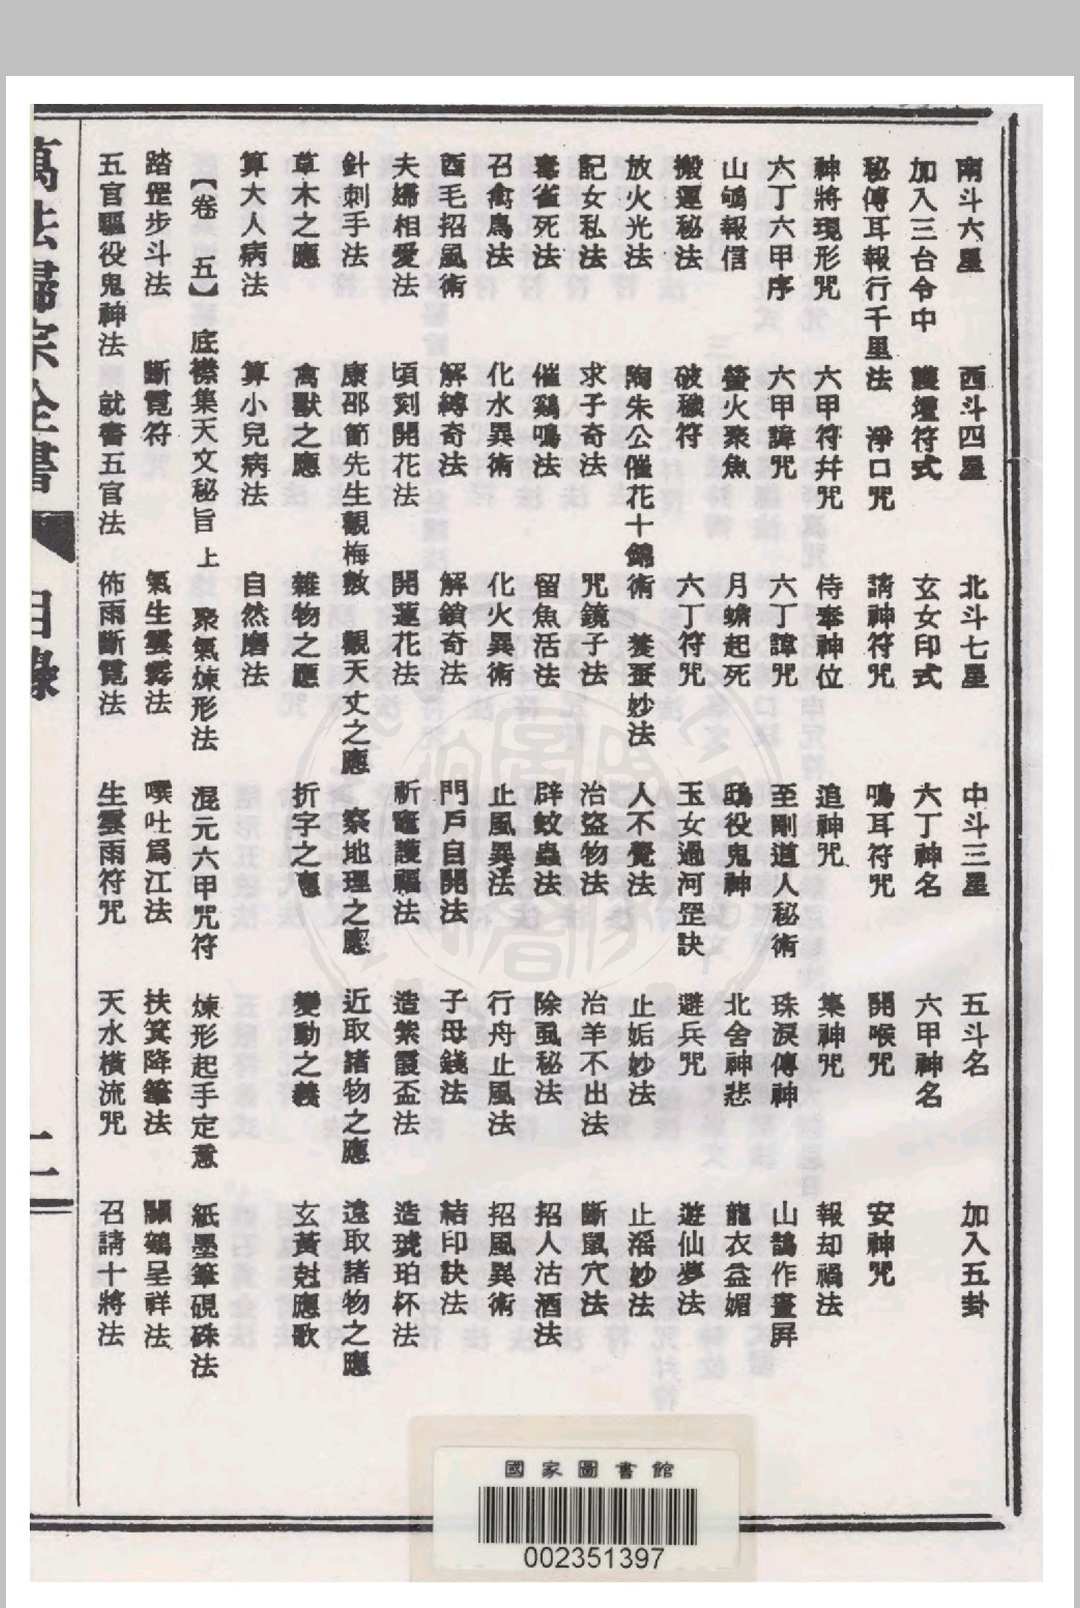 南斗六星　西斗四星　北斗七星　中斗三星　五斗名　加入五卦
加入三台令中　護壇符式　玄女印式　六丁神名　六甲神名
秘傳耳報行千里法　淨口咒　請神符咒　鳴耳符咒　開喉咒　安神咒
神將現形咒　六甲符幷咒　侍奉神位　追神咒　集神咒　報却禍法
六丁六甲序　六甲諱咒　六丁諱咒　至剛道人秘術　珠淚傳神　山鵲作晝屏
山鳴報信　螢火聚魚　月蟾起死　鴟役鬼神　北舍神悲　龍衣益媚
搬運秘法　破穢符　六丁符咒　玉女過河罡訣　避兵咒　遊仙夢法
放火光法　陶朱公催花十錦術　焚蚕妙法　人不覺法　止妬妙法　止淫妙法
記女私法　求子奇法　咒鏡子法　治盜物法　治羊不出法　斷鼠穴法
毒雀死法　催鷄鳴法　留魚活法　辟蚊蟲法　除虱秘法　招人沽酒法
召禽鳥法　化水異術　化火異術　止風異法　行舟止風法　招風異術
酉毛招風術　解縛奇法　解鎖奇法　門戶自開法　子母錢法　結印訣法
夫婦相愛法　頃刻開花法　開蓮花法　祈竈護福法　造紫霞盃法　造琥珀杯法
針刺手法　康邵節先生觀梅數　觀天文之應　察地理之應　近取諸物之應　遠取諸物之應
草木之應　禽獸之應　雜物之應　折字之應　變動之義　玄黃尅應歌
算大人病法　算小兒病法　自然磨法
【卷　五】　底襟集天文秘旨上　聚氣煉形法　混元六甲咒符　煉形起手定意　紙墨筆硯硃法
踏罡步斗法　斷霓符　氣生雲霧法　噀吐爲江法　扶箕降筆法　關鶴呈祥法
五官驅役鬼神法　就書五官法　佈雨斷霓法　生雲雨符咒　天水橫流咒　召請十將法
萬法歸宗全書　目錄　二
國家圖書館
002351397